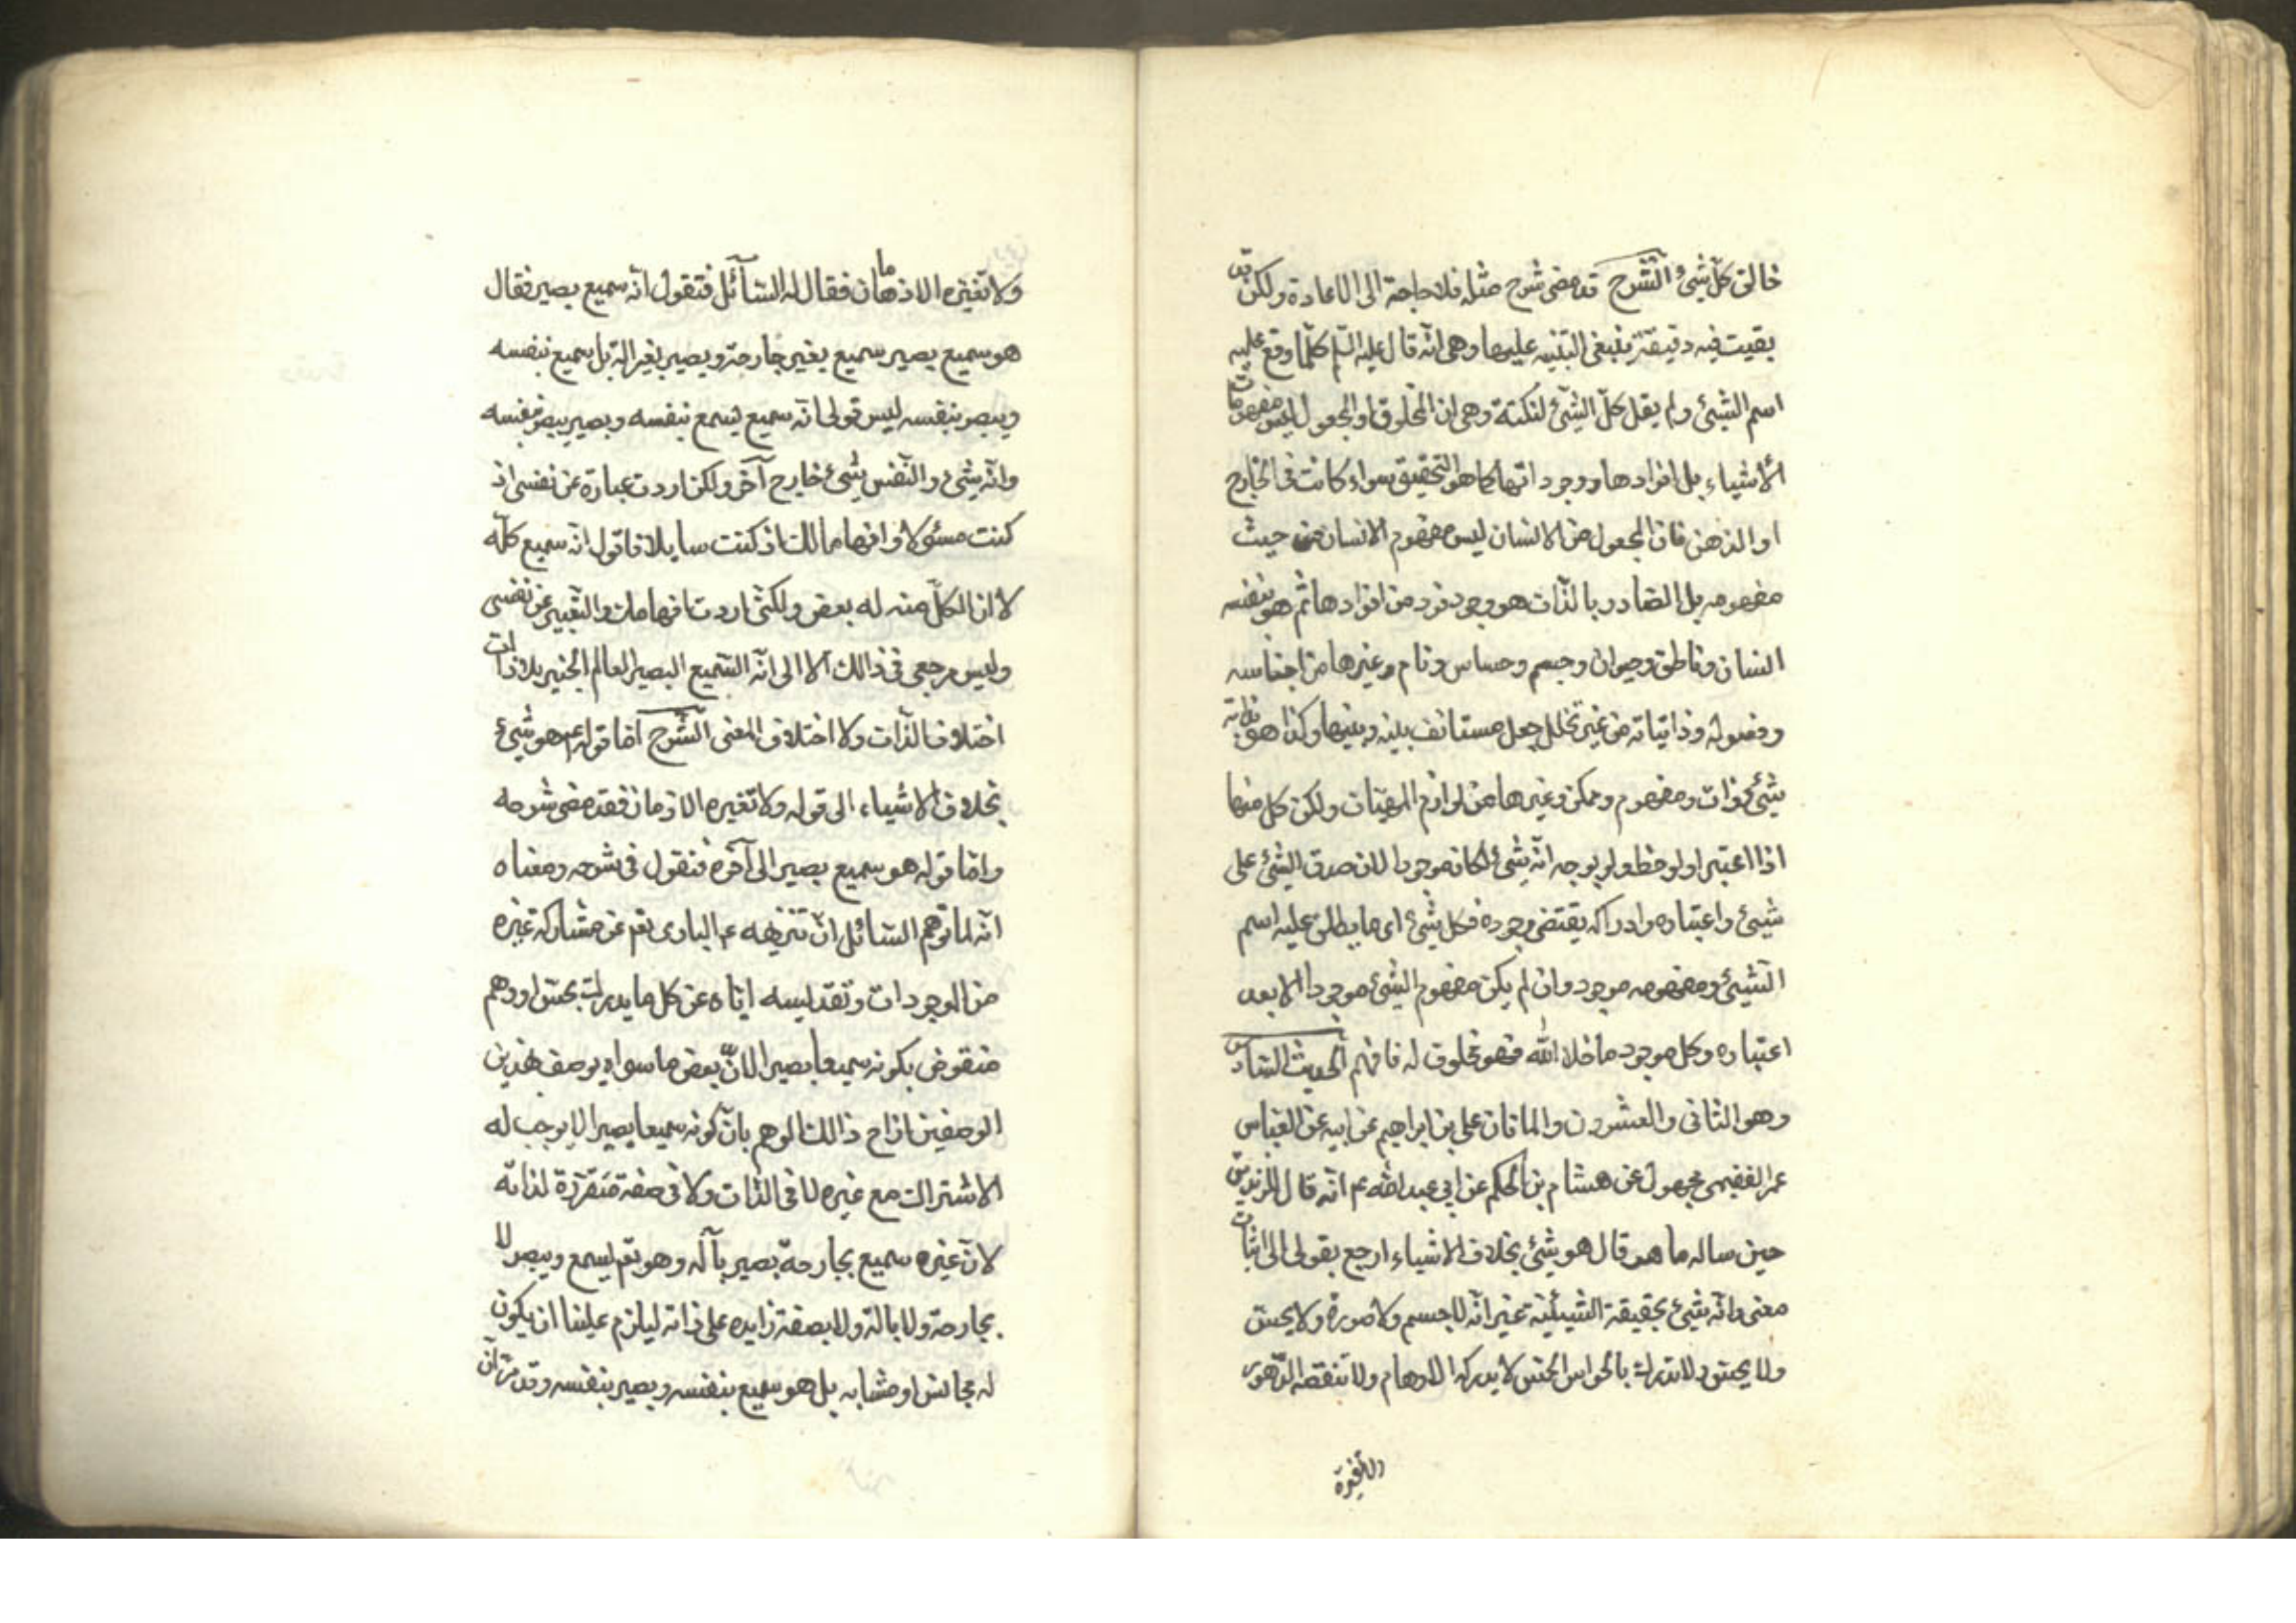 خالق كلّ شئ الشّرح قد مضى شرح مثله فلا حاجة الى الاعادة ولكن قد
بقيت فيه دقيقة ينبغى التنبيه عليها وهى انّه قال عليه السّلم كلّما وقع عليه
اسم الشئ ولم يقل كلّ الشئ لنكتة وهى ان المخلوق او المجعول ليس مفهوما
الأشياء بل افرادها ووجوداتها كما هو التحقيق سواء كانت فى الخارج
او الذهن فان المجعول من الانسان ليس مفهوم الانسان من حيث
مفهومه بل الصادر بالذّات هو وجود فرد من افرادها ثم هو بنفسه
انسان وناطق وحيوان وجسم وحساس ونام وغيرها من اجناسه
وفصوله وذاتياته من غير تخلل جعل مستانف بينه وبينها وكذا هو بذاته
شئ وذات ومفهوم وممكن وغيرها من لوازم المهيّات ولكن كل منها
اذا اعتبر او لوحظ ولو بوجه انّه شئ لكان موجودا لان صدق الشئ على
شيئ واعتباره وادراكه يقتضى وجوده فكل شئ اى ما يطلق عليه اسم
الشيئ ومفهومه موجود وان لم يكن مفهوم الشئ موجودا الا بعد
اعتباره وكل موجود ما خلا الله فهو مخلوق له فافهم الحديث السّادس
وهو الثانى والعشرون والماتان على بن ابراهيم عن ابيه عن العباس
عمر الفقيمى مجهول عن هشام بن الحكم عن ابى عبدالله عم انّه قال للزنديق
حين ساله ما هو قال هو شئ بخلاف الاشياء ارجع بقولى الى اثبات
معنى وانّه شئ بحقيقة الشيئية غير انّه لا جسم ولا صورة ولا يحس
ولا يجس ولا تدرك بالحواس الخمس لا يدركه الاوهام ولا تنقصه الدّهور
ولا تغيره
ولا تغيّره الازمان فقال له السّائل فتقول انّه سميع بصير فقال
هو سميع بصير سميع بغير جارحة وبصير بغير الة بل سميع بنفسه
ويبصر بنفسه ليس قولى انّه سميع يسمع بنفسه وبصير يبصر بنفسه
وانّه شئ والنّفس شئ خارج آخر ولكن اردت عبارة عن نفسى اذ
كنت مسئولا وافهاما لك اذ كنت سايلا فاقول انه سميع كلّه
لا ان الكلّ منه له بعض ولكنّى اردت افهامك والتّعبير عن نفسى
وليس مرجعى فى ذالك الا الى انّه السّميع البصير العالم الخبير بلا ذات
اختلاف الذّات ولا اختلاف المعنى الشّرح امّا قوله عم هو شئ
بخلاف الاشياء الى قوله ولا تغيره الازمان فقد مضى شرحه
وامّا قوله هو سميع بصير الى آخره فنقول فى شرحه ومعناه
انّه لما توهم السّائل انّ تنزيهه عم البارى تعم عن مشاركة غيره
من الموجودات وتقديسه ايّاه عن كل ما يدرك بحسّ او وهم
منقوض بكونه سميعا بصيرا لانّ بعض ما سواه يوصف بهذين
الوصفين ازاح ذالك الوهم بانّ كونه سميعا بصيرا لا يوجب له
الاشتراك مع غيره لا فى الذّات ولا فى صفة متقرّرة لذاته
لانّ غيره سميع بجارحة بصير بآلة وهو تعم يسمع ويبصر لا
بجارحة ولا بالة ولا بصفة زايده على ذاته ليلزم علينا ان يكون
له مجانس او مشابه بل هو سميع بنفسه وبصير بنفسه وقد مرّ انّ